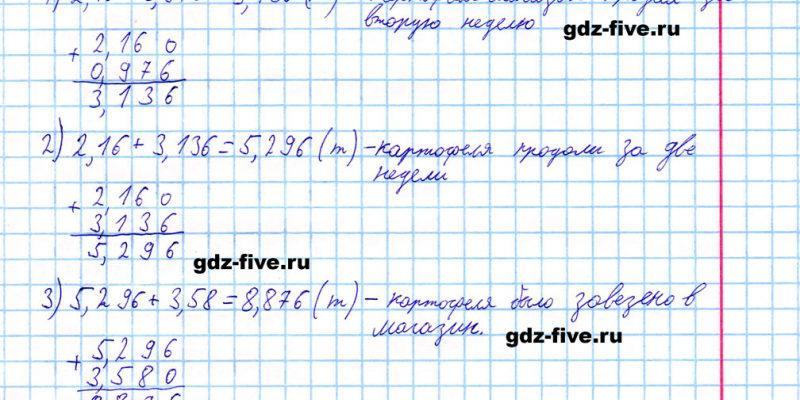 вторую неделю
gdz-five.ru
+ 2,160
0,976
3,136
2) 2,16 + 3,136 = 5,296 (т) – картофеля продали за две
недели
+ 2,160
3,136
5,296
gdz-five.ru
3) 5,296 + 3,58 = 8,876 (т) – картофеля было завезено в
магазин.
gdz-five.ru
+ 5,296
3,580